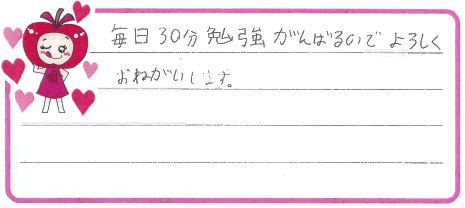 毎日30分勉強がんばるのでよろしく
おねがいします。